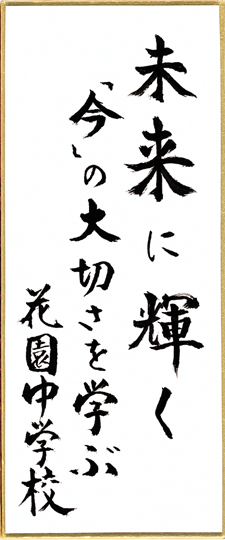 未来に輝く
「今」の大切さを学ぶ
花園中学校